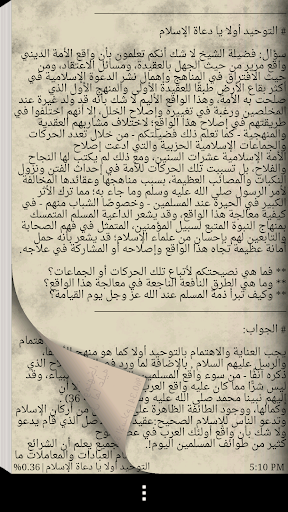 # التوحيد أولا يا دعاة الإسلام
سؤال: فضيلة الشيخ لا شك أنكم تعلمون بأن واقع الأمة الديني
واقع مرير من حيث الجهل بالعقيدة، ومسائل الاعتقاد، ومن
حيث الافتراق في المناهج وإهمال نشر الدعوة الإسلامية في
أكثر بقاع الأرض طبقا للعقيدة الأولى والمنهج الأول الذي
صلحت به الأمة، وهذا الواقع الأليم لا شك بأنه قد ولد غيرة عند
المخلصين ورغبة في تغييره وإصلاح الخلل، إلا أنهم اختلفوا في
طريقتهم في إصلاح هذا الواقع؛ لاختلاف مشاربهم العقدية
والمنهجية - كما تعلم ذلك فضيلتكم - من خلال تعدد الحركات
والجماعات الإسلامية الحزبية والتي ادعت إصلاح
الأمة الإسلامية عشرات السنين، ومع ذلك لم يكتب لها النجاح
والفلاح، بل تسببت تلك الحركات للأمة في إحداث الفتن ونزول
النكبات والمصائب العظيمة، بسبب مناهجها وعقائدها المخالفة
لأمر الرسول صلى الله عليه وسلم وما جاء به؛ مما ترك الأثر
الكبير في الحيرة عند المسلمين - وخصوصا الشباب منهم - في
كيفية معالجة هذا الواقع، وقد يشعر الداعية المسلم المتمسك
بمنهاج النبوة المتبع لسبيل المؤمنين، المتمثل في فهم الصحابة
والتابعين لهم بإحسان من علماء الإسلام؛ قد يشعر بأنه حمل
أمانة عظيمة تجاه هذا الواقع وإصلاحه أو المشاركة في علاجه.
** فما هي نصيحتكم لأتباع تلك الحركات أو الجماعات؟
** وما هي الطرق النافعة الناجعة في معالجة هذا الواقع؟
** وكيف تبرأ ذمة المسلم عند الله عز وجل يوم القيامة؟
# الجواب:
يجب العناية والاهتمام بالتوحيد أولا كما هو منهج
والرسل عليهم السلام. بالإضافة لما
ذكره آنفا - من سوء واقع المسلمين
ليس شرا مما كان عليه واقع العرب
إليهم نبينا محمد صلى الله عليه و
وكمالها، ووجود الطائفة الظاهرة
ودعو الناس للإسلام الصحيح
ولا شك بأن واقع أولئك العرب في
كثير من طوائف المسلمين اليوم!.
%0.36 التوحيد أولا يا دعاة الإسلام 5:10 PM